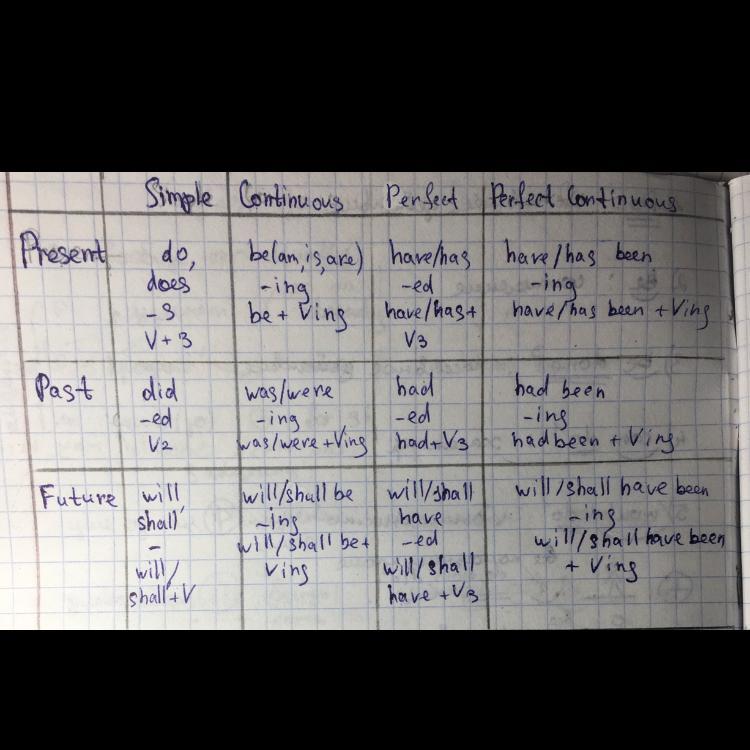 Simple Continuous Perfect Perfect Continuous
Present do, be(am, is, are) have/has have/has been
does -ing -ed -ing
-s be + Ving have/has + have/has been + Ving
V+s V3
Past did was/were had had been
-ed -ing -ed -ing
V2 was/were + Ving had + V3 had been + Ving
Future will will/shall be will/shall will/shall have been
shall -ing have -ing
- will/shall be + -ed will/shall have been
will/ Ving will/shall + Ving
shall + V have + V3